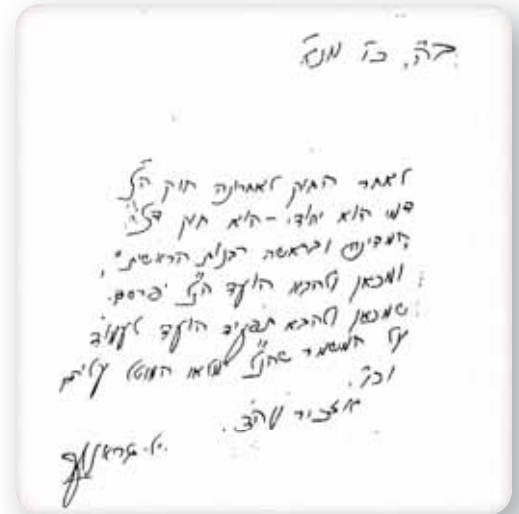 ב"ה, כ"ז מנ"א
לאחר החוק לאחרונה חוק הנ"ל
דמי הוא יהודי - הוא חוק דל'
המדינה ובראשה רבנות הראשית",
ומכאן ולהבא הועד הנ"ל יפרסם.
שמכאן ולהבא תפקיד הועד לעמוד
על המשמר שהנ"ל ימלאו המוטל עליהם
וכו'.
אזכיר עה"צ.